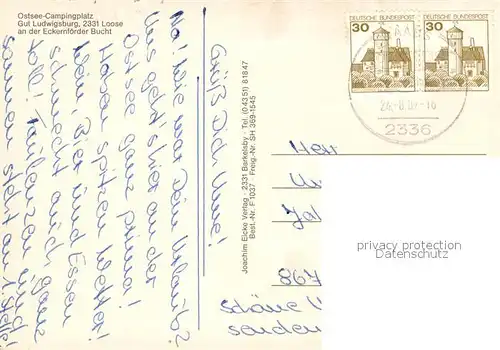 Ostsee-Campingplatz
Gut Ludwigsburg, 2331 Loose
an der Eckernförder Bucht
Grüß Dich Uwe!
Na! Wie war Dein Urlaub?
Uns geht's hier an der
Ostsee ganz prima!
Haben spitzen Wetter!
Wein Bier und Essen
schmeckt auch ganz
toll! Faulenzen und
sonnen steht an 1. Stelle!
Joachim Eicke Verlag · 2331 Barkelsby · Tel. (0 43 51) 8 18 47
Best.-Nr. F 1037 · Freig.-Nr. SH 369-1545
30 DEUTSCHE BUNDESPOST
DEUTSCHE BUNDESPOST 30
2336
Herr
867
schöne
senden
privacy protection
Datenschutz